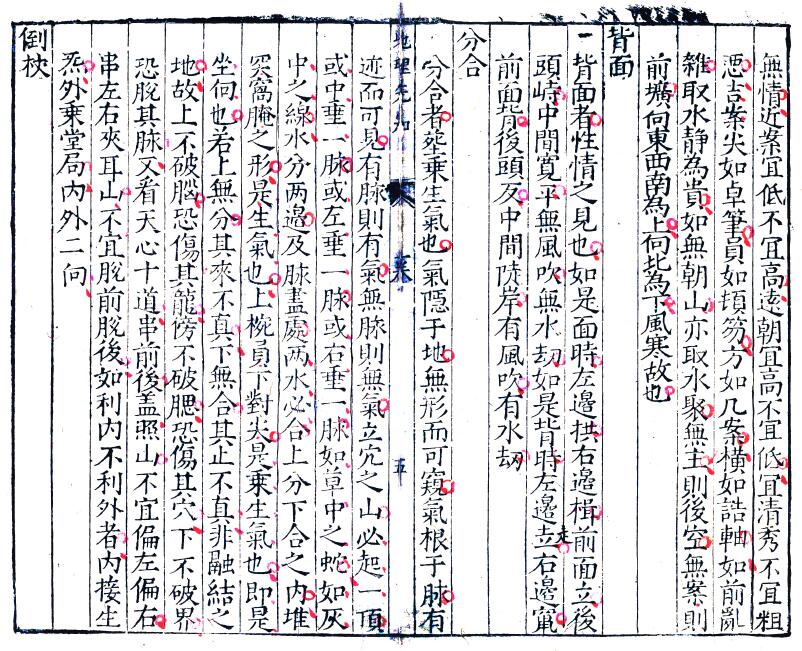 無情近案宜低不宜高遠朝宜高不宜低宜清秀不宜粗
惡吉案尖如卓筆員如頓笏方如几案橫如誥軸如前亂
雜取水静為貴如無朝山亦取水聚無主則後空無案則
前壙向東西南為上向北為下風寒故也
背面
一背面者性情之見也如是面時左邊拱右邊楫前面立後
頭崎中間寬平無風吹無水刼如是背時左邊走立右邊竄
前面背後頭反中間陡岸有風吹有水刼
分合
分合者葬乗生氣也氣隠于地無形而可窺氣根于脉有
迹而可見有脉則有氣無脉則無氣立穴之山必起一頂
或中垂一脉或左垂一脉或右垂一脉如草中之蛇如灰
中之線水分两邉及脉盡處两水必合上分下合之内堆
突窩腌之形是生氣也上椀員下對尖是乗生氣也即是
坐向也若上無分其來不真下無合其止不真非融結之
地故上不破腦恐傷其龍傍不破腮恐傷其穴下不破界
恐脫其脉又看天心十道串前後盖照山不宜偏左偏右
串左右夾耳山不宜脫前脫後如利内不利外者内接生
炁外乗堂局内外二向
倒杖
地理先知
卷
五